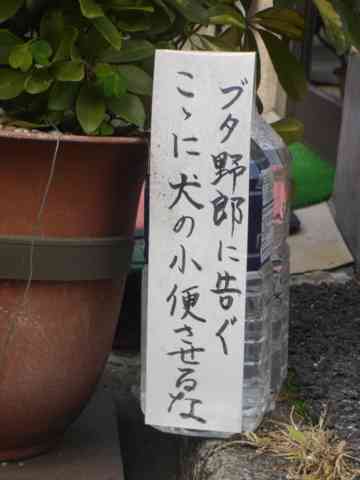 ブタ野郎に告ぐ
こゝに犬の小便させるな